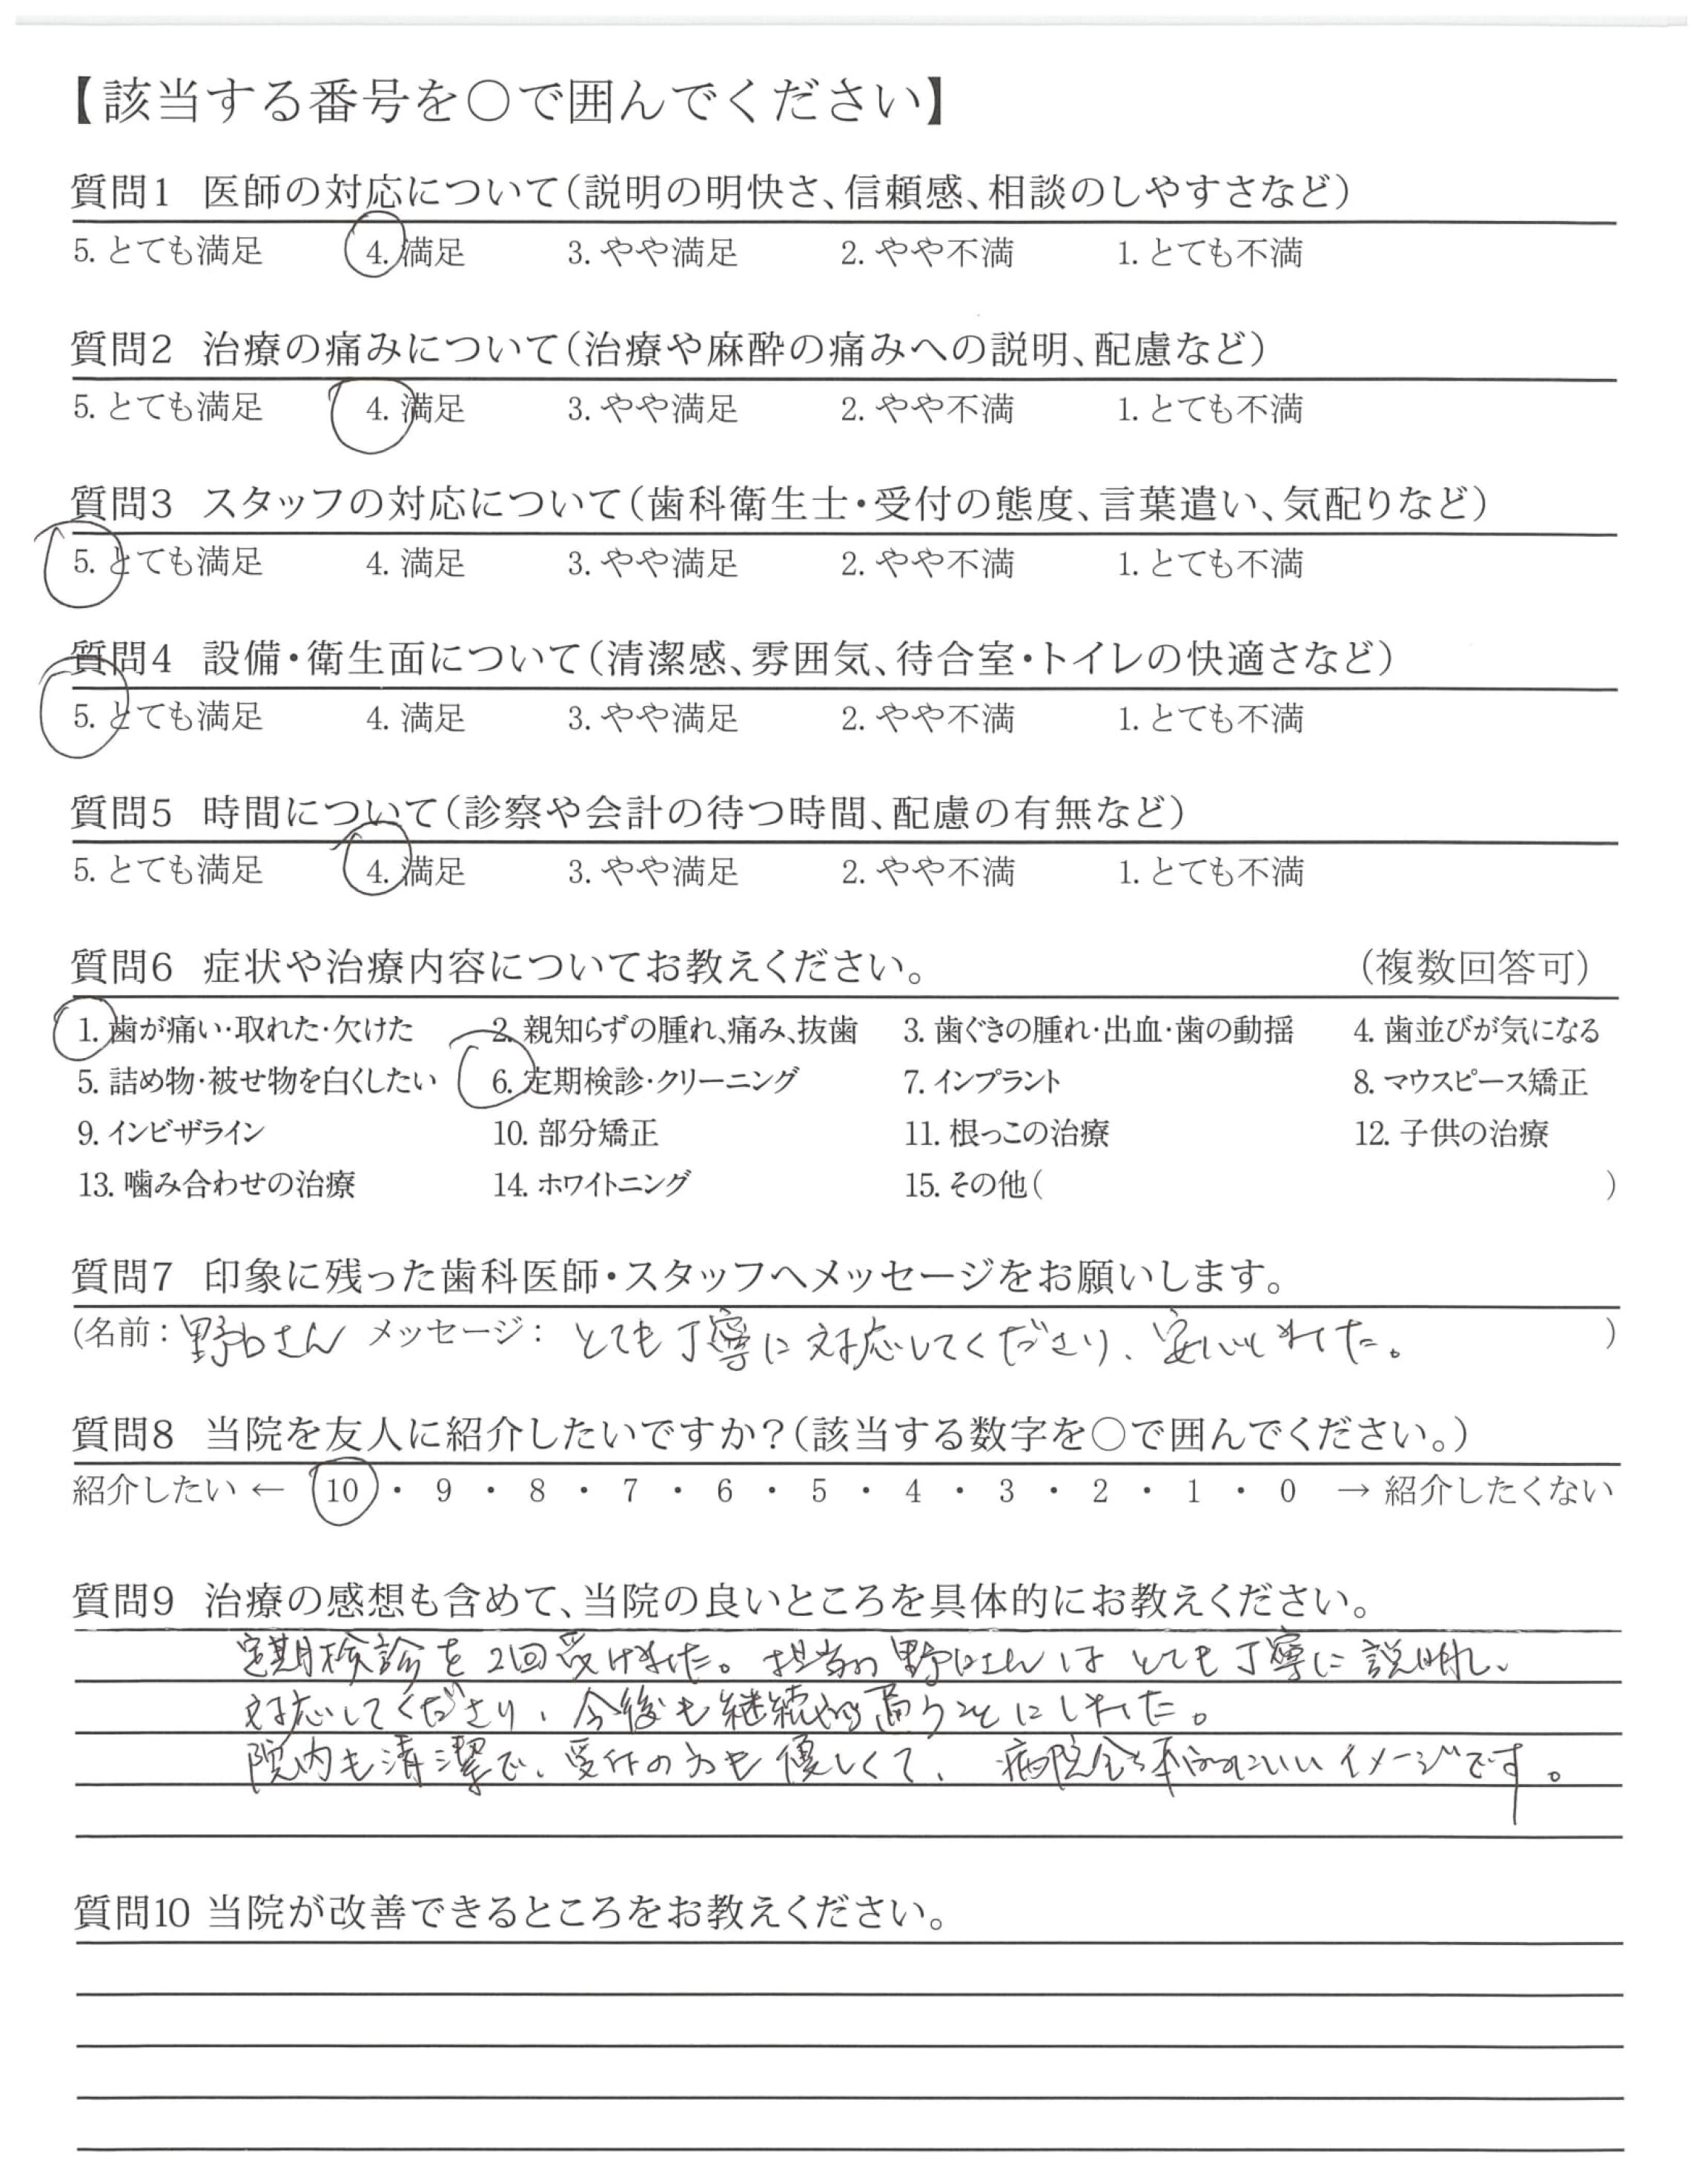 【該当する番号を○で囲んでください】
質問1 医師の対応について(説明の明快さ、信頼感、相談のしやすさなど)
5. とても満足 4. 満足 3. やや満足 2. やや不満 1. とても不満
質問2 治療の痛みについて(治療や麻酔の痛みへの説明、配慮など)
5. とても満足 4. 満足 3. やや満足 2. やや不満 1. とても不満
質問3 スタッフの対応について(歯科衛生士・受付の態度、言葉遣い、気配りなど)
5. とても満足 4. 満足 3. やや満足 2. やや不満 1. とても不満
質問4 設備・衛生面について(清潔感、雰囲気、待合室・トイレの快適さなど)
5. とても満足 4. 満足 3. やや満足 2. やや不満 1. とても不満
質問5 時間について(診察や会計の待つ時間、配慮の有無など)
5. とても満足 4. 満足 3. やや満足 2. やや不満 1. とても不満
質問6 症状や治療内容についてお教えください。 (複数回答可)
1. 歯が痛い・取れた・欠けた 2. 親知らずの腫れ、痛み、抜歯 3. 歯ぐきの腫れ・出血・歯の動揺 4. 歯並びが気になる
5. 詰め物・被せ物を白くしたい 6. 定期検診・クリーニング 7. インプラント 8. マウスピース矯正
9. インビザライン 10. 部分矯正 11. 根っこの治療 12. 子供の治療
13. 噛み合わせの治療 14. ホワイトニング 15. その他( )
質問7 印象に残った歯科医師・スタッフへメッセージをお願いします。
(名前:野口さん メッセージ: とても丁寧に対応してくださり、安心しました。 )
質問8 当院を友人に紹介したいですか?(該当する数字を○で囲んでください。)
紹介したい ← 10 ・ 9 ・ 8 ・ 7 ・ 6 ・ 5 ・ 4 ・ 3 ・ 2 ・ 1 ・ 0 → 紹介したくない
質問9 治療の感想も含めて、当院の良いところを具体的にお教えください。
定期検診を2回受けました。担当の野口さんはとても丁寧に説明し、
対応してくださり、今後も継続的 通うことにしました。
院内も清潔で、受付の方も優しくて、病院全体的にいいイメージです。
質問10 当院が改善できるところをお教えください。